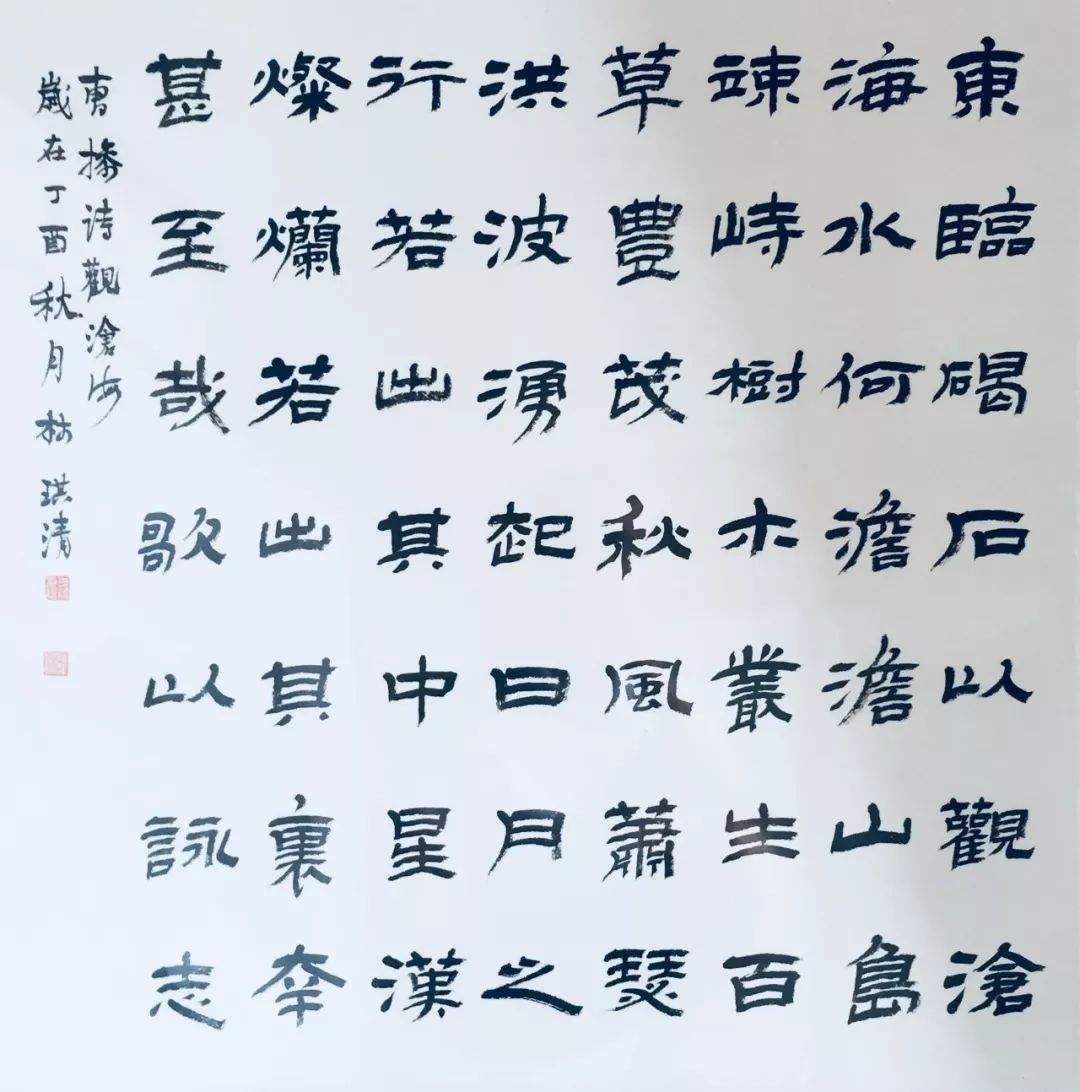 東臨碣石以觀滄
海水何澹澹山島
竦峙樹木叢生百
草豐茂秋風蕭瑟
洪波湧起日月之
行若出其中星漢
燦爛若出其裏幸
甚至哉歌以詠志
曹操詩觀滄海
歲在丁酉秋月林琪清